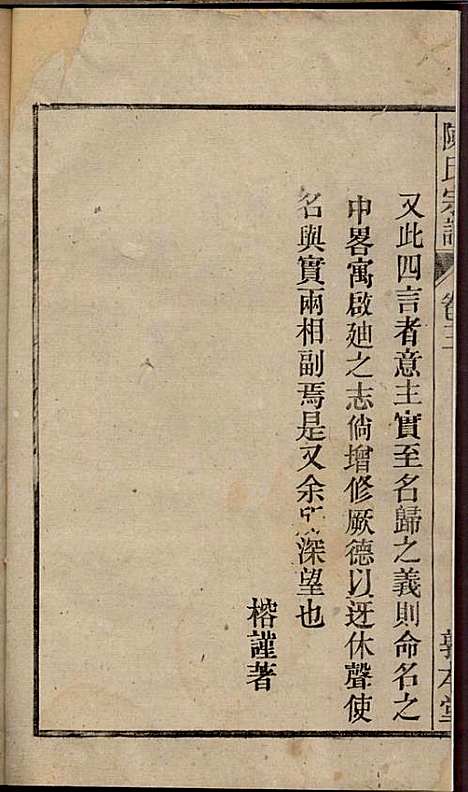 陳氏宗譜 卷三 敦本堂
又此四言者意主實至名歸之義則命名之
中畧寓啟廸之志倘增修厥德以迓休聲使
名與實兩相副焉是又余深望也
榕謹著